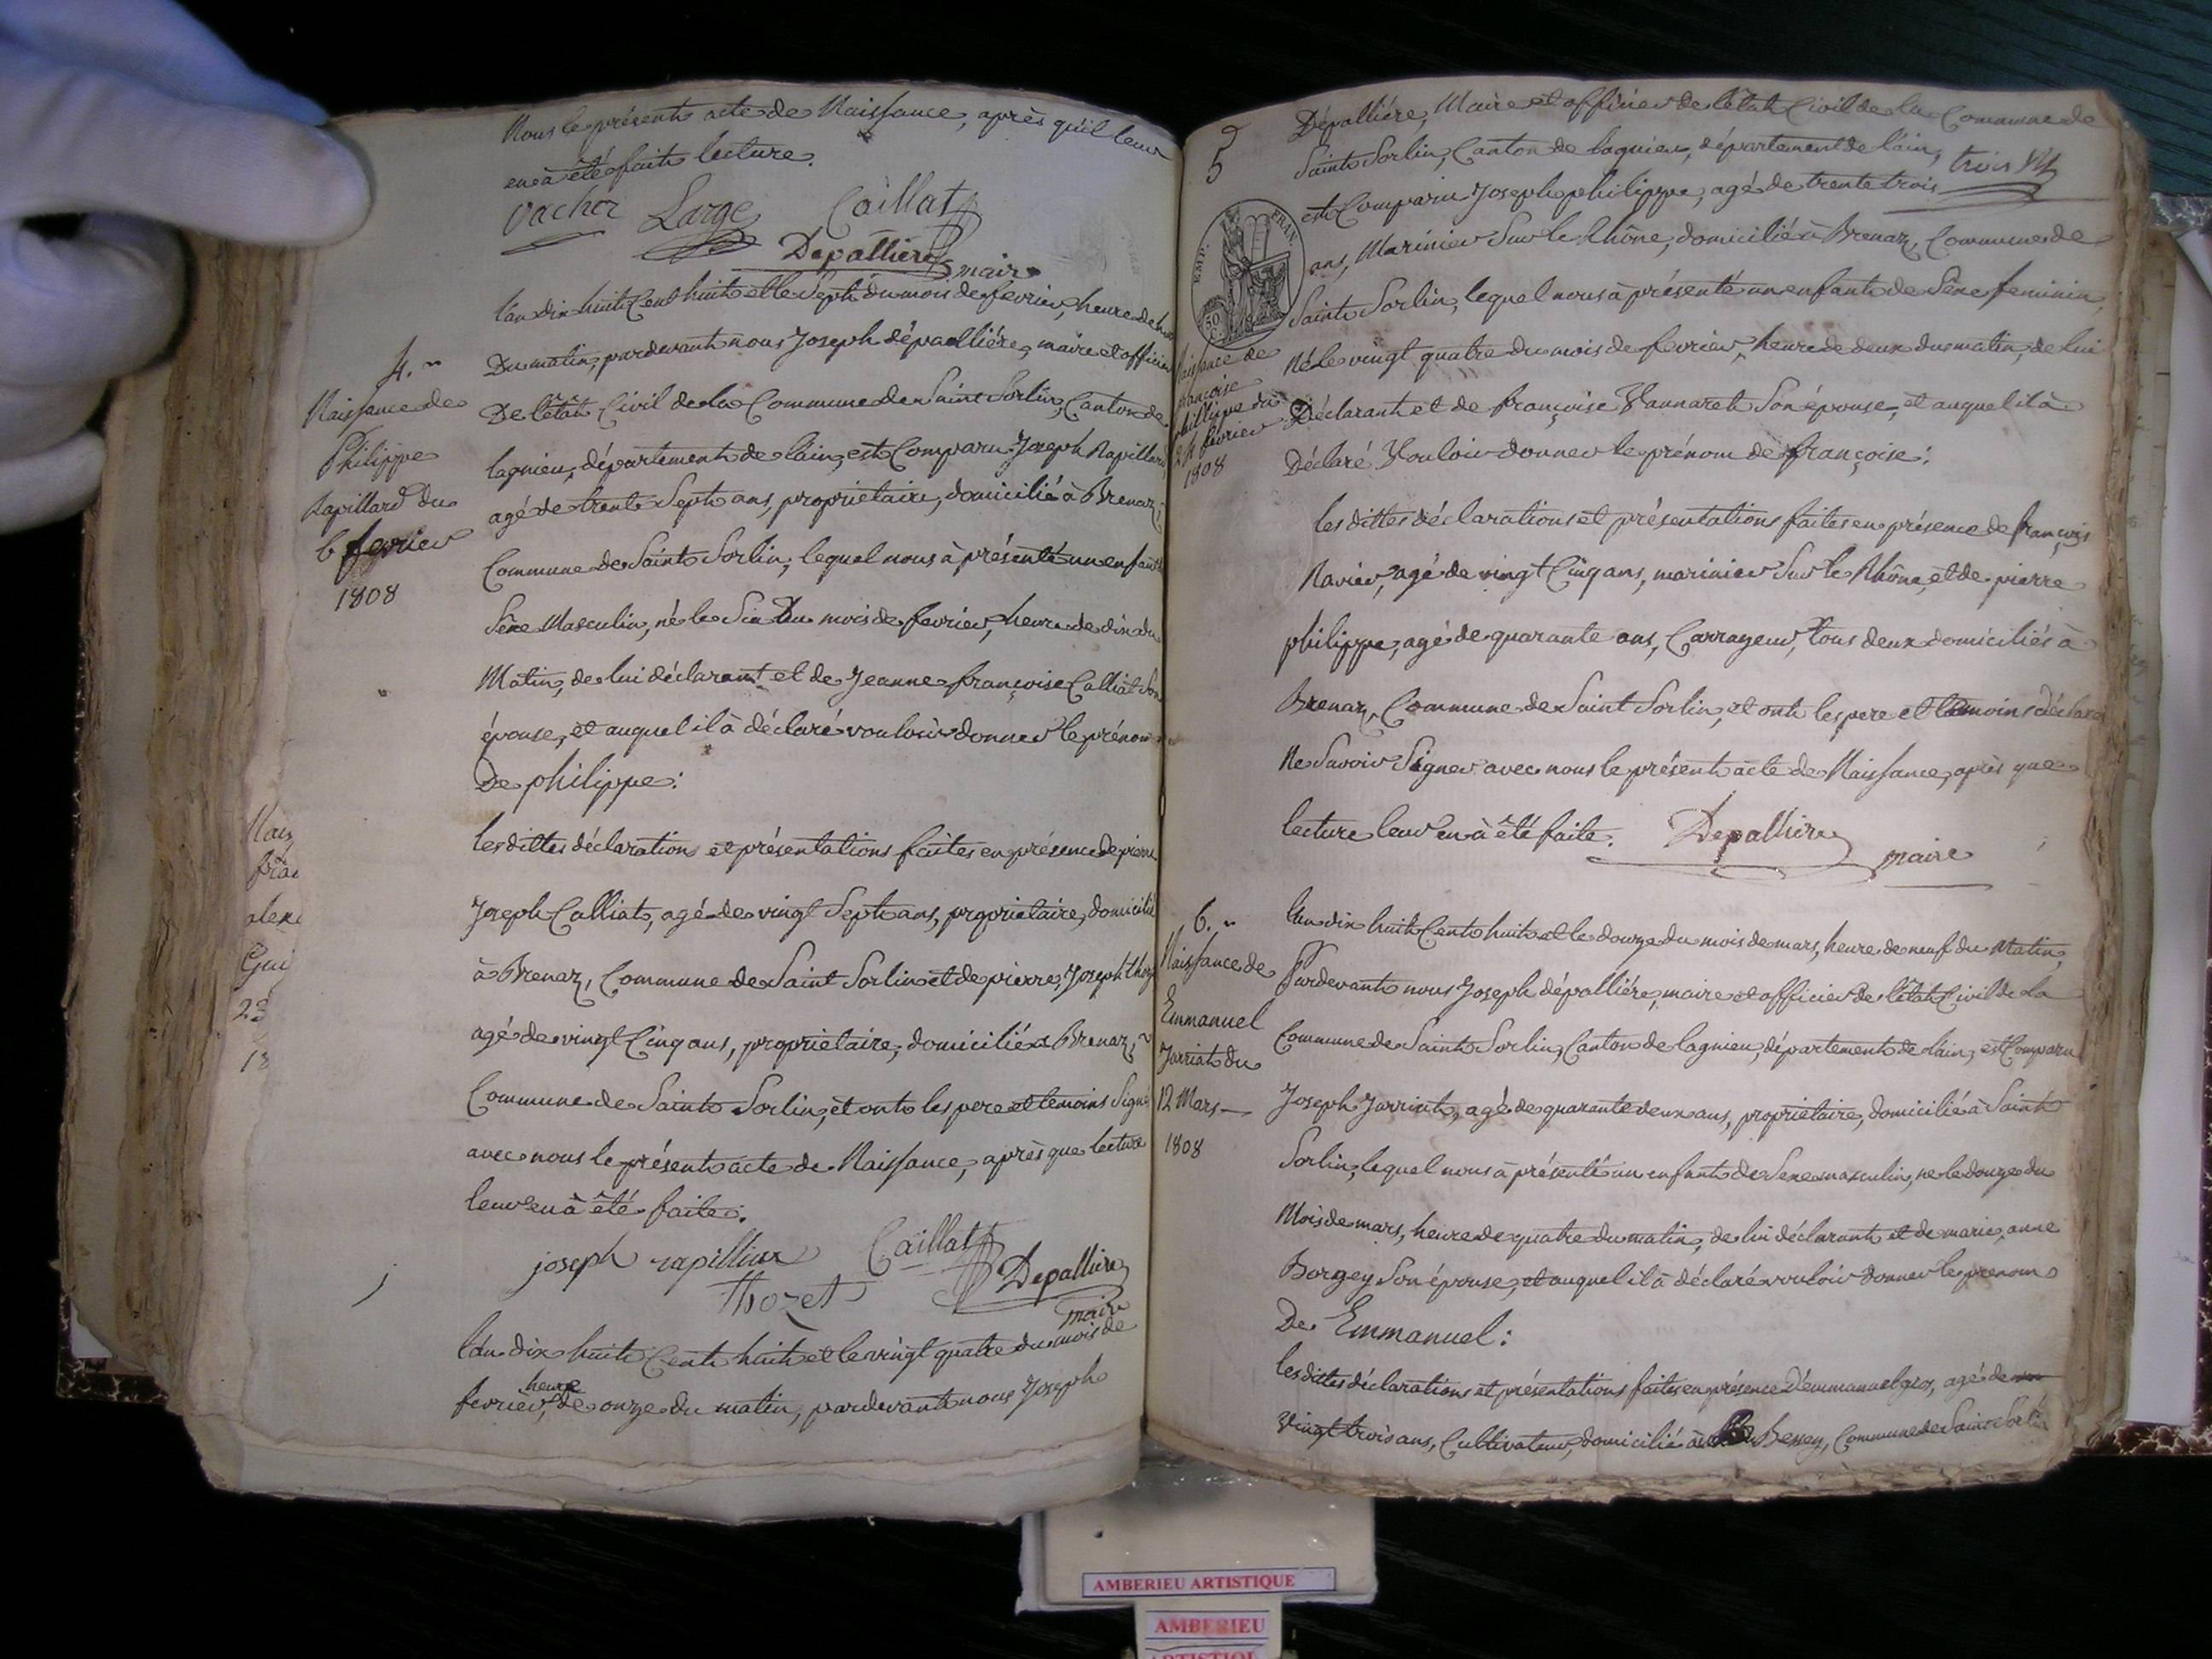 Nous le présent acte de Naissance, après qu'il leur
en à été fait lecture.
vacher Large Caillat
Depalliere maire
4.
Naissance de
Philippe
Rapillard du
6 fevrier
1808
l'an dix huit Cent huit et le Sept du mois de fevrier, heure de
Du matin, pardevant nous Joseph dépalliére, maire et officier
De l'état Civil de la Commune de Saint Sorlin, Canton de
lagnieu, département de lain, est Comparu Joseph Rapillard
agé de trente Sept ans, propriétaire, domicilié à Brenaz,
Commune de Saint Sorlin, lequel nous à présenté un enfant
Séxe Masculin, né le Six du mois de fevrier, heure de dix du
Matin, de lui déclarant et de Jeanne françoise Calliat Son
épouse, et auquel il à déclaré vouloir donner le prénom
De philippe:
les dittes déclarations et présentations faites en présence de pierre
Joseph Calliat, agé de vingt Sept ans, propriétaire, domicilié
à Brenaz, Commune de Saint Sorlin et de pierre Joseph thozet
agé de vingt Cinq ans, propriétaire, domicilié à Brenaz,
Commune de Saint Sorlin, et ont les pere et temoins Signé
avec nous le présent acte de Naissance, après que lecture
leur en à été faite.
joseph rapilliar Caillat
thozet Depalliere
maire
l'an dix huit Cent huit et le vingt quatre du mois de
fevrier, heure de onze du matin, pardevant nous Joseph
Nais
fran
alex
Gui
23
18
5
Dépalliére, Maire et officier de l'état Civil de la Commune de
Saint Sorlin, Canton de lagnieu, département de lain, trois
est Comparu Joseph philippe, agé de trente trois
ans, Marinier Sur le Rhône, domicilié à Brenaz, Commune de
Saint Sorlin, lequel nous à présenté un enfant de Séxe feminin,
Né le vingt quatre du mois de fevrier, heure de deux du matin, de lui
Déclarant et de françoise Vannaret Son épouse, et auquel il à
Déclaré Vouloir donner le prénom de françoise:
EMP. FRAN.
50 C.
Naissance de
françoise
phillippe du
24 fevrier
1808
les dittes déclarations et présentations faites en présence de françois
Ravier, agé de vingt Cinq ans, marinier Sur le Rhône, et de pierre
philippe, agé de quarante ans, Carrayeur, tous deux domiciliés à
Brenaz, Commune de Saint Sorlin, et ont les pere et témoins déclaré
Ne Savoir Signer avec nous le présent acte de Naissance, après que
lecture leur en à été faite. Depalliere
maire
6.
Naissance de
Emmanuel
Jarriat du
12 Mars
1808
l'an dix huit Cent huit et le douze du mois de mars, heure de neuf du Matin,
Pardevant nous Joseph dépalliére, maire et officier de l'état Civil de la
Commune de Saint Sorlin, Canton de lagnieu, département de lain, est Comparu
Joseph Jarriat, agé de quarante deux ans, propriétaire, domicilié à Saint
Sorlin, lequel nous à présenté un enfant de Sexe masculin, né le douze du
Mois de mars, heure de quatre du matin, de lui déclarant et de marie anne
Borgey Son épouse, et auquel il à déclaré vouloir donner le prenom
De Emmanuel:
les dittes déclarations et présentations faites en présence D'emmanuel gros, agé de
vingt trois ans, Cultivateur, domicilié à Bessey, Commune de Saint Sorlin
AMBERIEU ARTISTIQUE
AMBERIEU
ARTISTIQUE